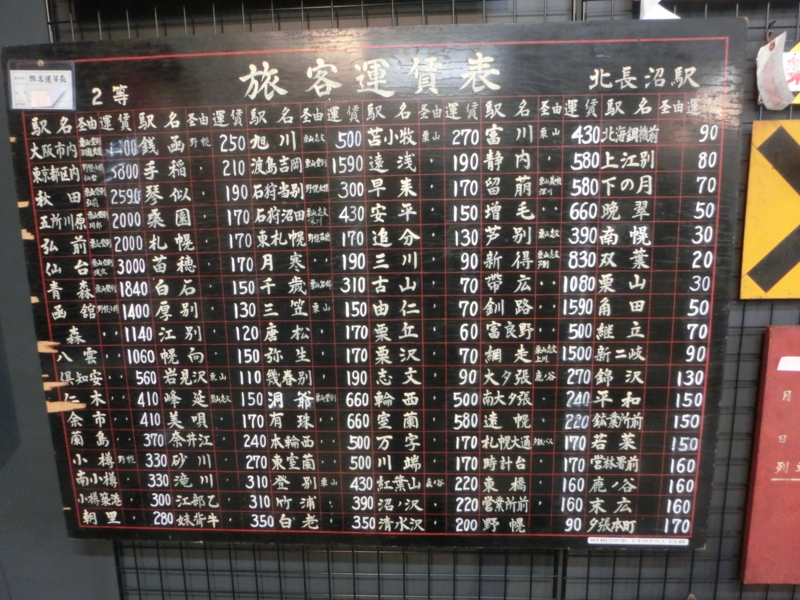 旅客運賃表
2等
北長沼駅
駅名 경由 運賃 駅名 運賃 駅名 運賃 駅名 運賃 駅名 運賃 駅名 運賃
大阪市内 銭函 野幌 250 旭川 500 苫小牧 栗山 270 富川 栗山 430 北海鋼機前 90
東京都区内 手稲 210 渡島吉岡 1590 遠浅 190 静内 580 上江別 80
秋田 2590 琴似 190 石狩当別 300 早来 170 留萠 580 下の月 70
五所川原 2000 桑園 170 石狩沼田 430 安平 150 増毛 660 晩翠 50
弘前 2000 札幌 170 東札幌 170 追分 130 芦別 390 南幌 30
仙台 3000 苗穂 170 月寒 190 三川 90 新得 830 双葉 20
青森 1840 白石 150 千歳 310 古山 70 帯広 1080 栗山 30
函館 1400 厚別 130 三笠 栗山 150 由仁 70 釧路 1590 角田 50
森 1140 江別 120 唐松 170 栗丘 60 富良野 500 継立 70
八雲 1060 幌向 150 弥生 170 栗沢 70 網走 1500 新二岐 90
倶知安 560 岩見沢 栗山 110 幾春別 190 志文 90 大夕張 鹿ノ谷 270 錦沢 130
仁木 410 峰延 150 洞爺 660 輪西 500 南大夕張 240 平和 150
余市 410 美唄 170 有珠 660 室蘭 580 遠幌 220 鉱業所前 150
蘭島 370 奈井江 240 本輪西 500 万字 170 札幌大通 170 若菜 150
小樽 野幌 330 砂川 270 東室蘭 500 川端 170 時計台 170 営林署前 160
南小樽 330 滝川 310 登別 栗山 430 紅葉山 220 東橋 160 鹿ノ谷 160
小樽築港 300 江部乙 310 竹浦 390 沼ノ沢 220 営業所前 160 末広 160
朝里 280 妹背牛 350 白老 350 清水沢 200 野幌 90 夕張本町 170
月
日
列